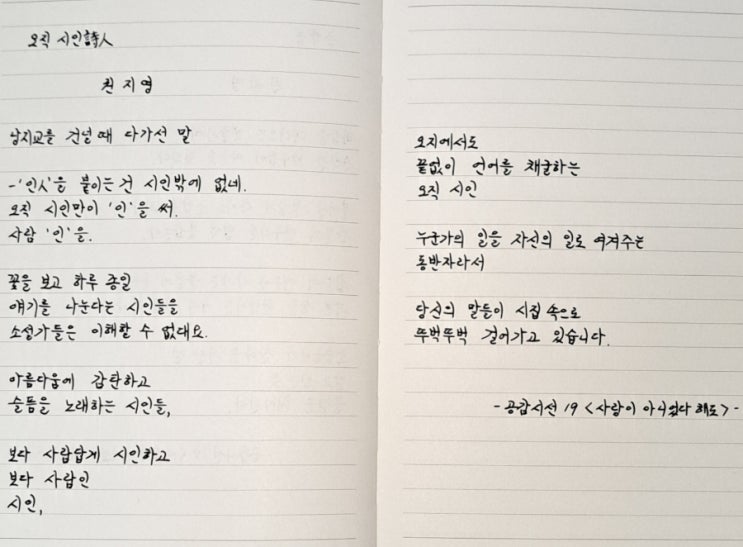 오직 시인詩人
천지영
남지교를 건널 때 다가선 말
-'인人'을 붙이는 건 시인밖에 없네.
오직 시인만이 '인'을 써.
사람 '인'을.
꽃을 보고 하루 종일
얘기를 나눈다는 시인들을
소설가들은 이해할 수 없대요.
아름다움에 감탄하고
슬픔을 노래하는 시인들,
보다 사람답게 시인하고
보다 사람인
시인,
오지에서도
끝없이 언어를 채굴하는
오직 시인
누군가의 일을 자신의 일로 여겨주는
동반자라서
당신의 말들이 시집 속으로
뚜벅뚜벅 걸어가고 있습니다.
- 공감시선 19 <사람이 아니었다 해도> -